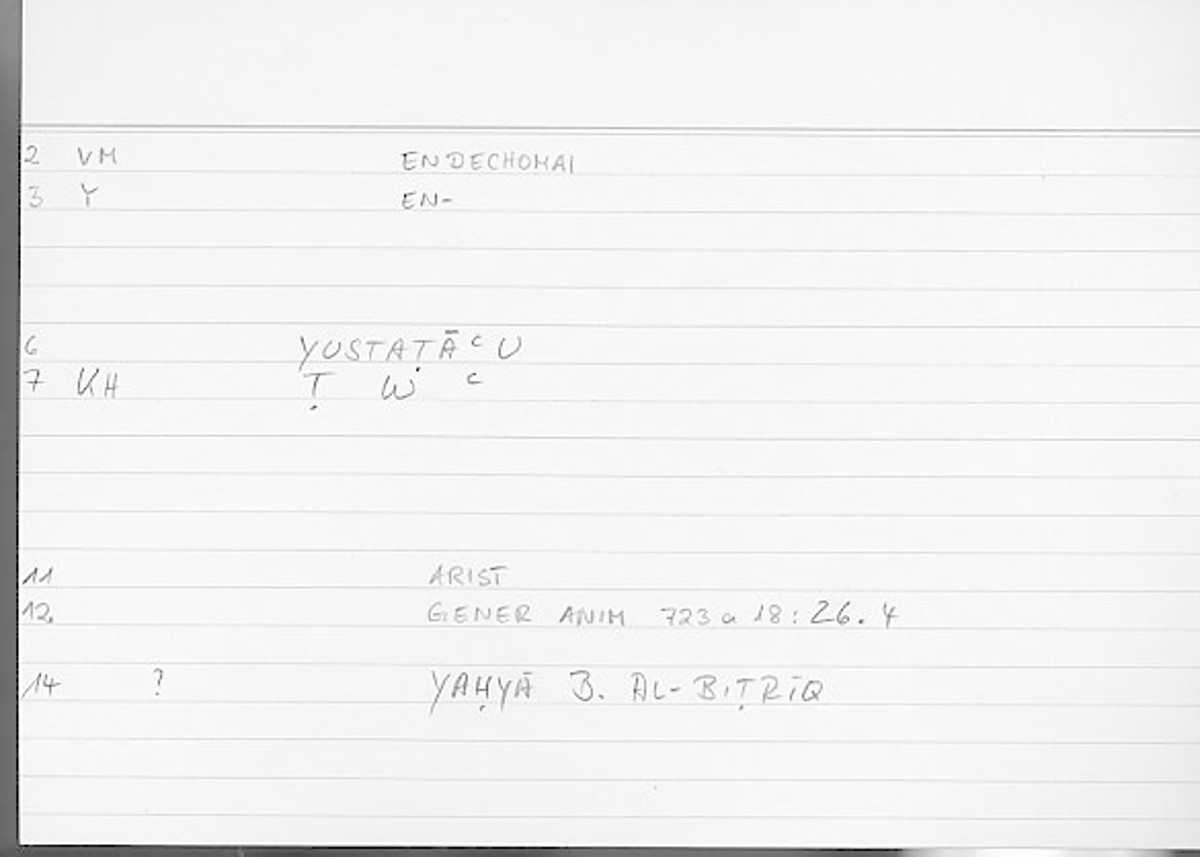 2 VM ENDECHOMAI
3 Y EN-
6 YUSTAṬĀ ᶜ U
7 KH Ṭ W ᶜ
11 ARIST
12. GENER ANIM 723 a 18 : 26. 4
14 ? YAḤYĀ B. AL-BIṬRĪQ